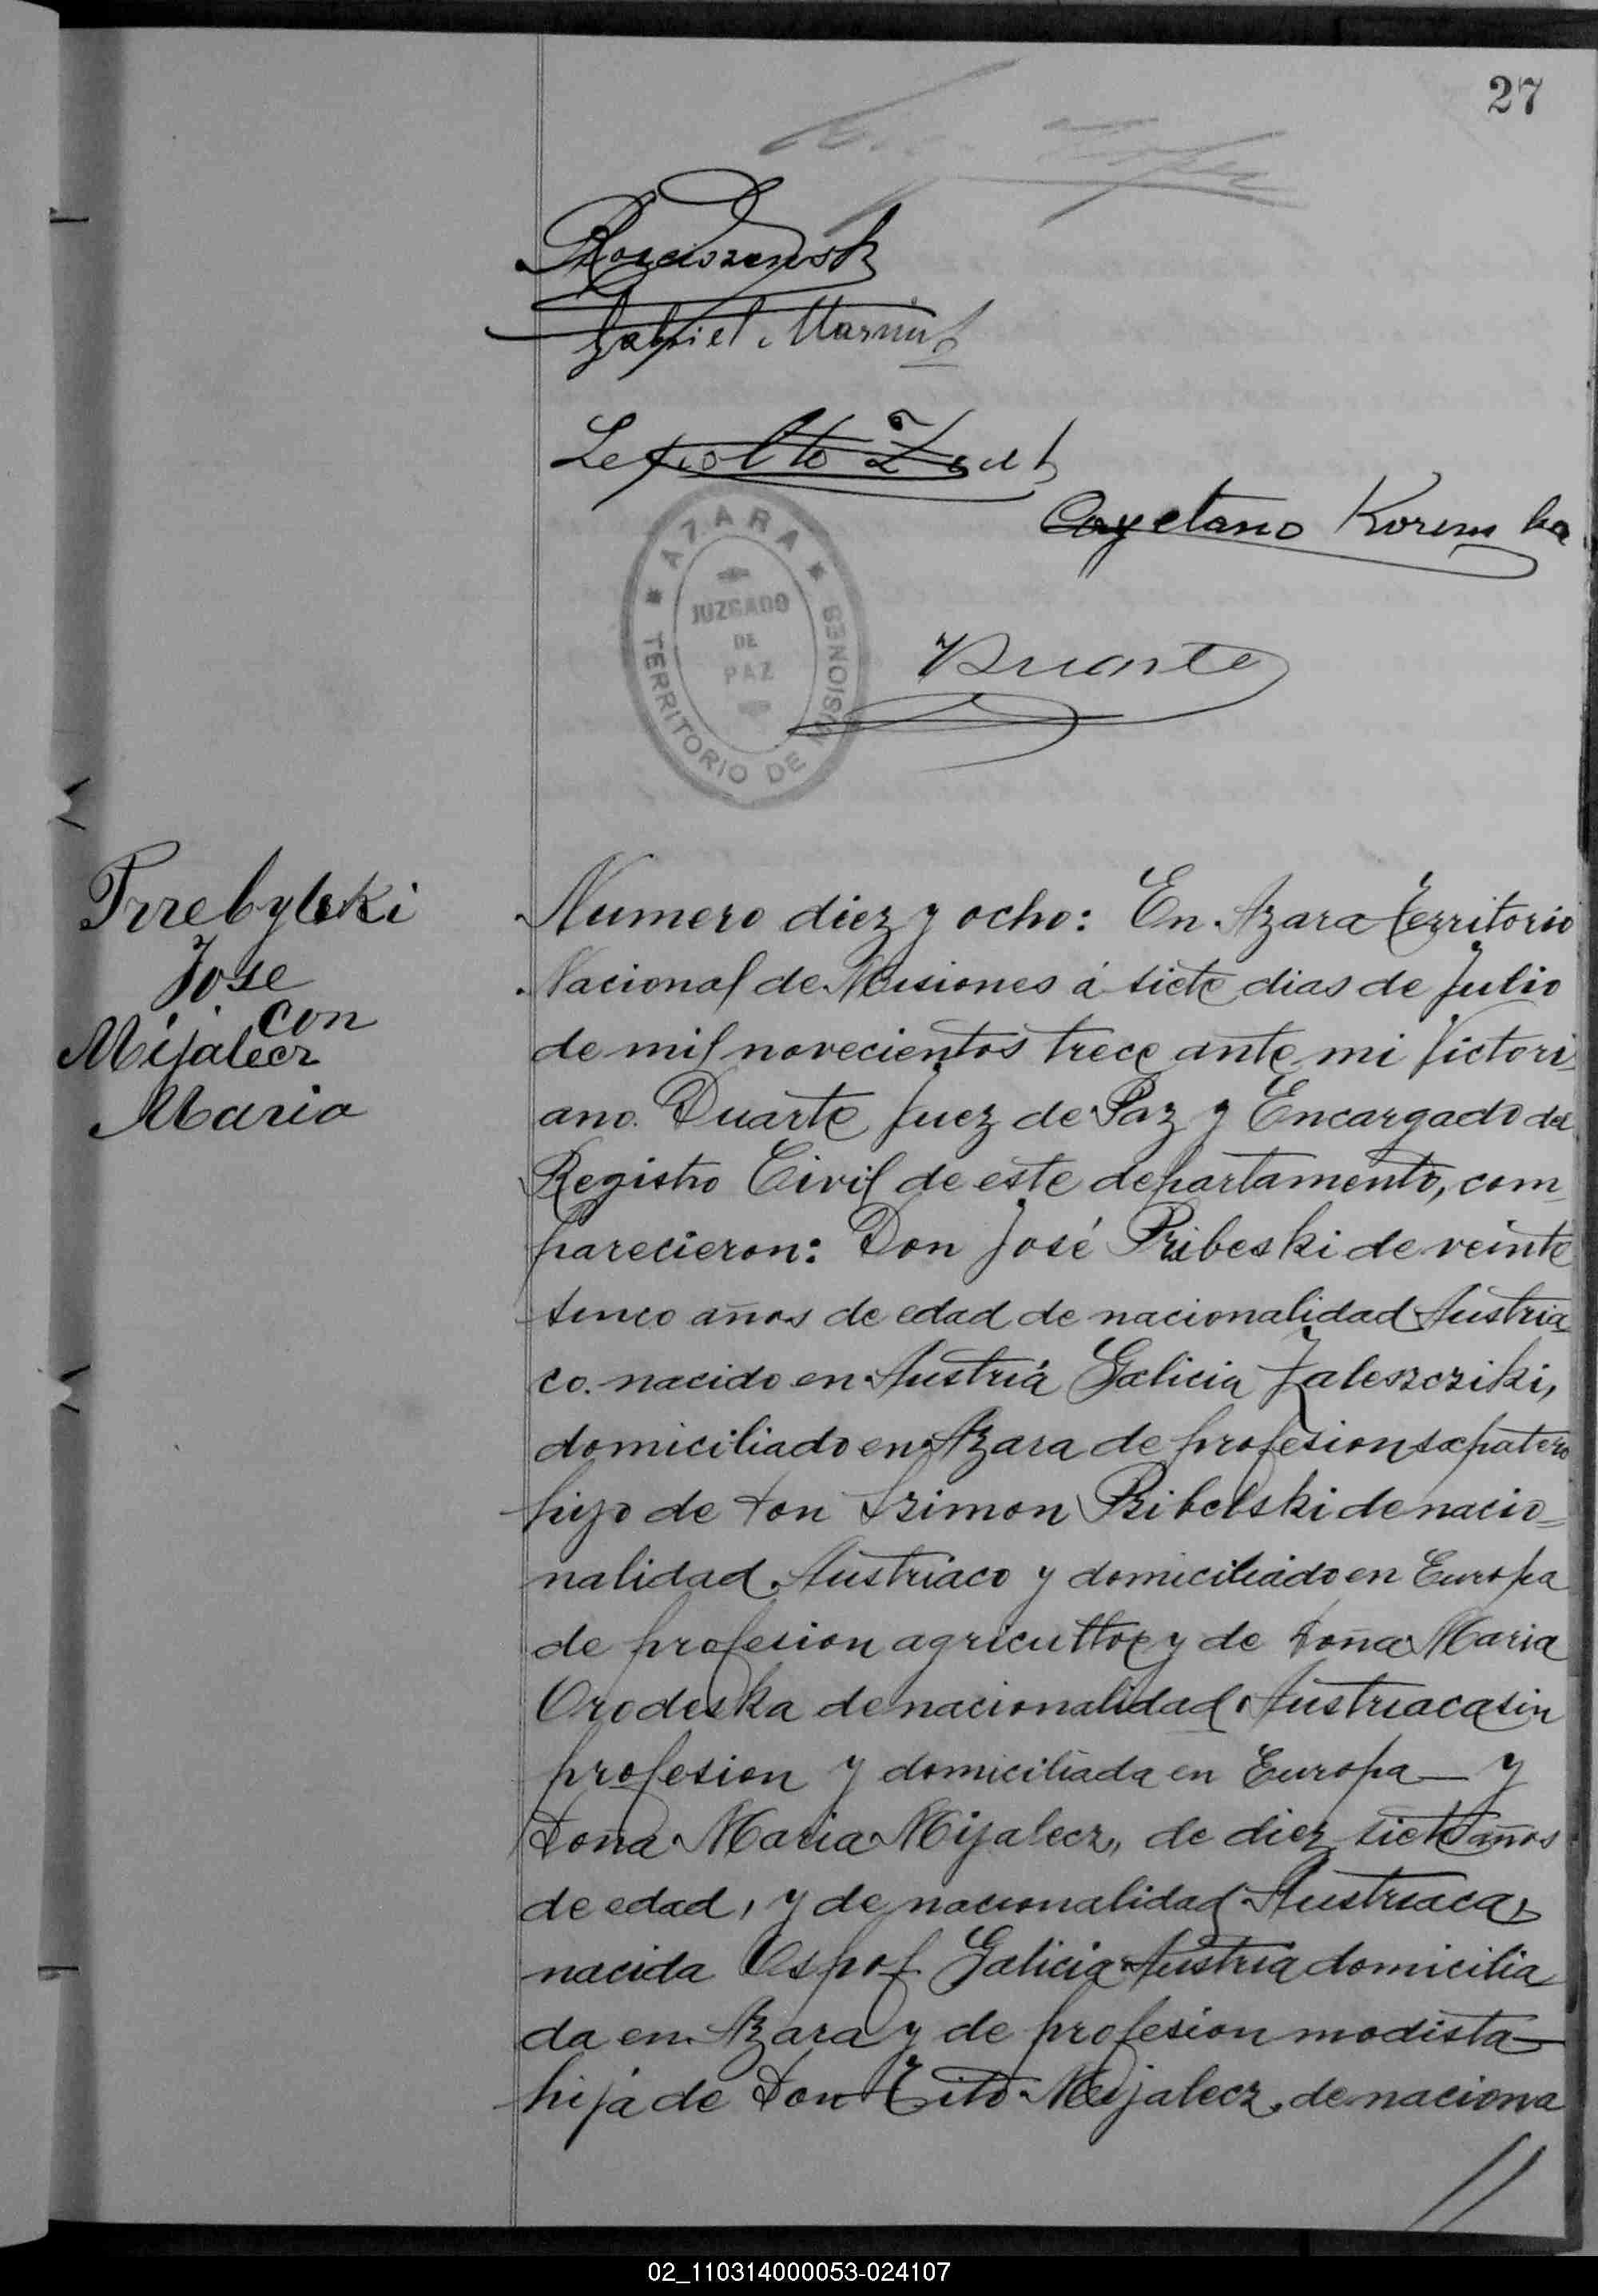 27
Gabriel Marni
Cayetano Korem ka
AZARA
JUZGADO
DE
PAZ
TERRITORIO DE MISIONES
VDuarte
Trrebylski
Jose
con
Mijalecz
Maria
Numero diez y ocho: En Azara territorio
Nacional de Misiones á siete dias de Julio
de mil novecientos trece ante mi Victori
ano Duarte Juez de Paz y Encargado del
Registro Civil de este departamento, com
parecieron: Don José Pribeski de veinte
sinco años de edad de nacionalidad Austria
co. nacido en Austria Galicia Zaleszcziki,
domiciliado en Azara de profesion sapatero
hijo de don Szimon Pzibelski de nacio=
nalidad Austriaco y domiciliado en Europa
de profesion agricultor y de doña Maria
Orodeska de nacionalidad Austriaca sin
profesion y domiciliada en Europa — y
Doña Maria Mijalecz, de diez siete años
de edad, y de nacionalidad Austriaca,
nacida Ospof Galicia Austria domicilia
da en Azara y de profesion modista—
hija de Don Tito Mijalecz, de naciona
//
02_110314000053-024107